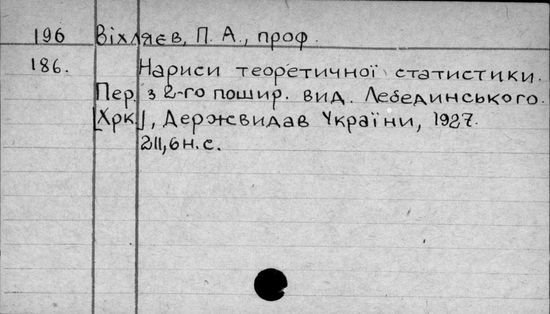 196 Віхляєв, П. А., проф.
186. Нариси теоретичної статистики.
Пер. з 2-го пошир. вид. Лебединського.
[Хрк.], Держвидав України, 1927.
211,6 н. с.